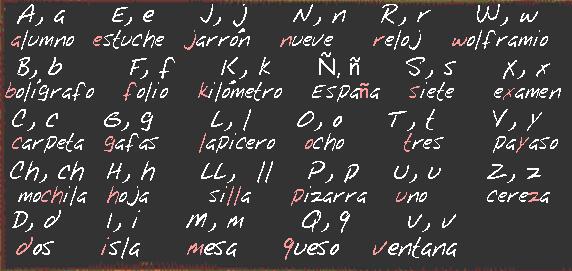 A, a E, e J, j N, n R, r W, w
alumno estuche jarrón nueve reloj wolframio
B, b F, f K, k Ñ, ñ S, s X, x
bolígrafo folio kilómetro España siete examen
C, c G, g L, l O, o T, t Y, y
carpeta gafas lapicero ocho tres payaso
Ch, ch H, h LL, ll P, p U, u Z, z
mochila hoja silla pizarra uno cereza
D, d I, i M, m Q, q V, v
dos isla mesa queso ventana